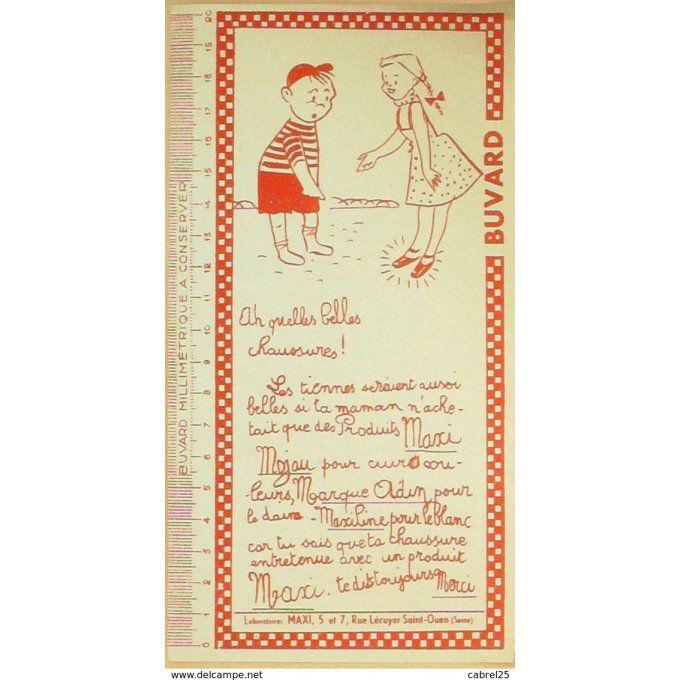 BUVARD
BUVARD MILLIMÉTRIQUE A CONSERVER
20
19
18
17
16
15
14
13
12
11
10
9
8
7
6
5
4
3
2
1
0
Ah quelles belles
chaussures !
Les tiennes seraient aussi
belles si ta maman n'ache-
tait que des Produits Maxi
Mojau pour cuirs cou-
leurs, Marque Odin pour
le daim - Maxiline pour le blanc
car tu sais que ta chaussure
entretenue avec un produit
Maxi . te dit toujours Merci
Laboratoires MAXI, 5 et 7, Rue Lécuyer Saint-Ouen (Seine)
www.delcampe.net
cabrel25